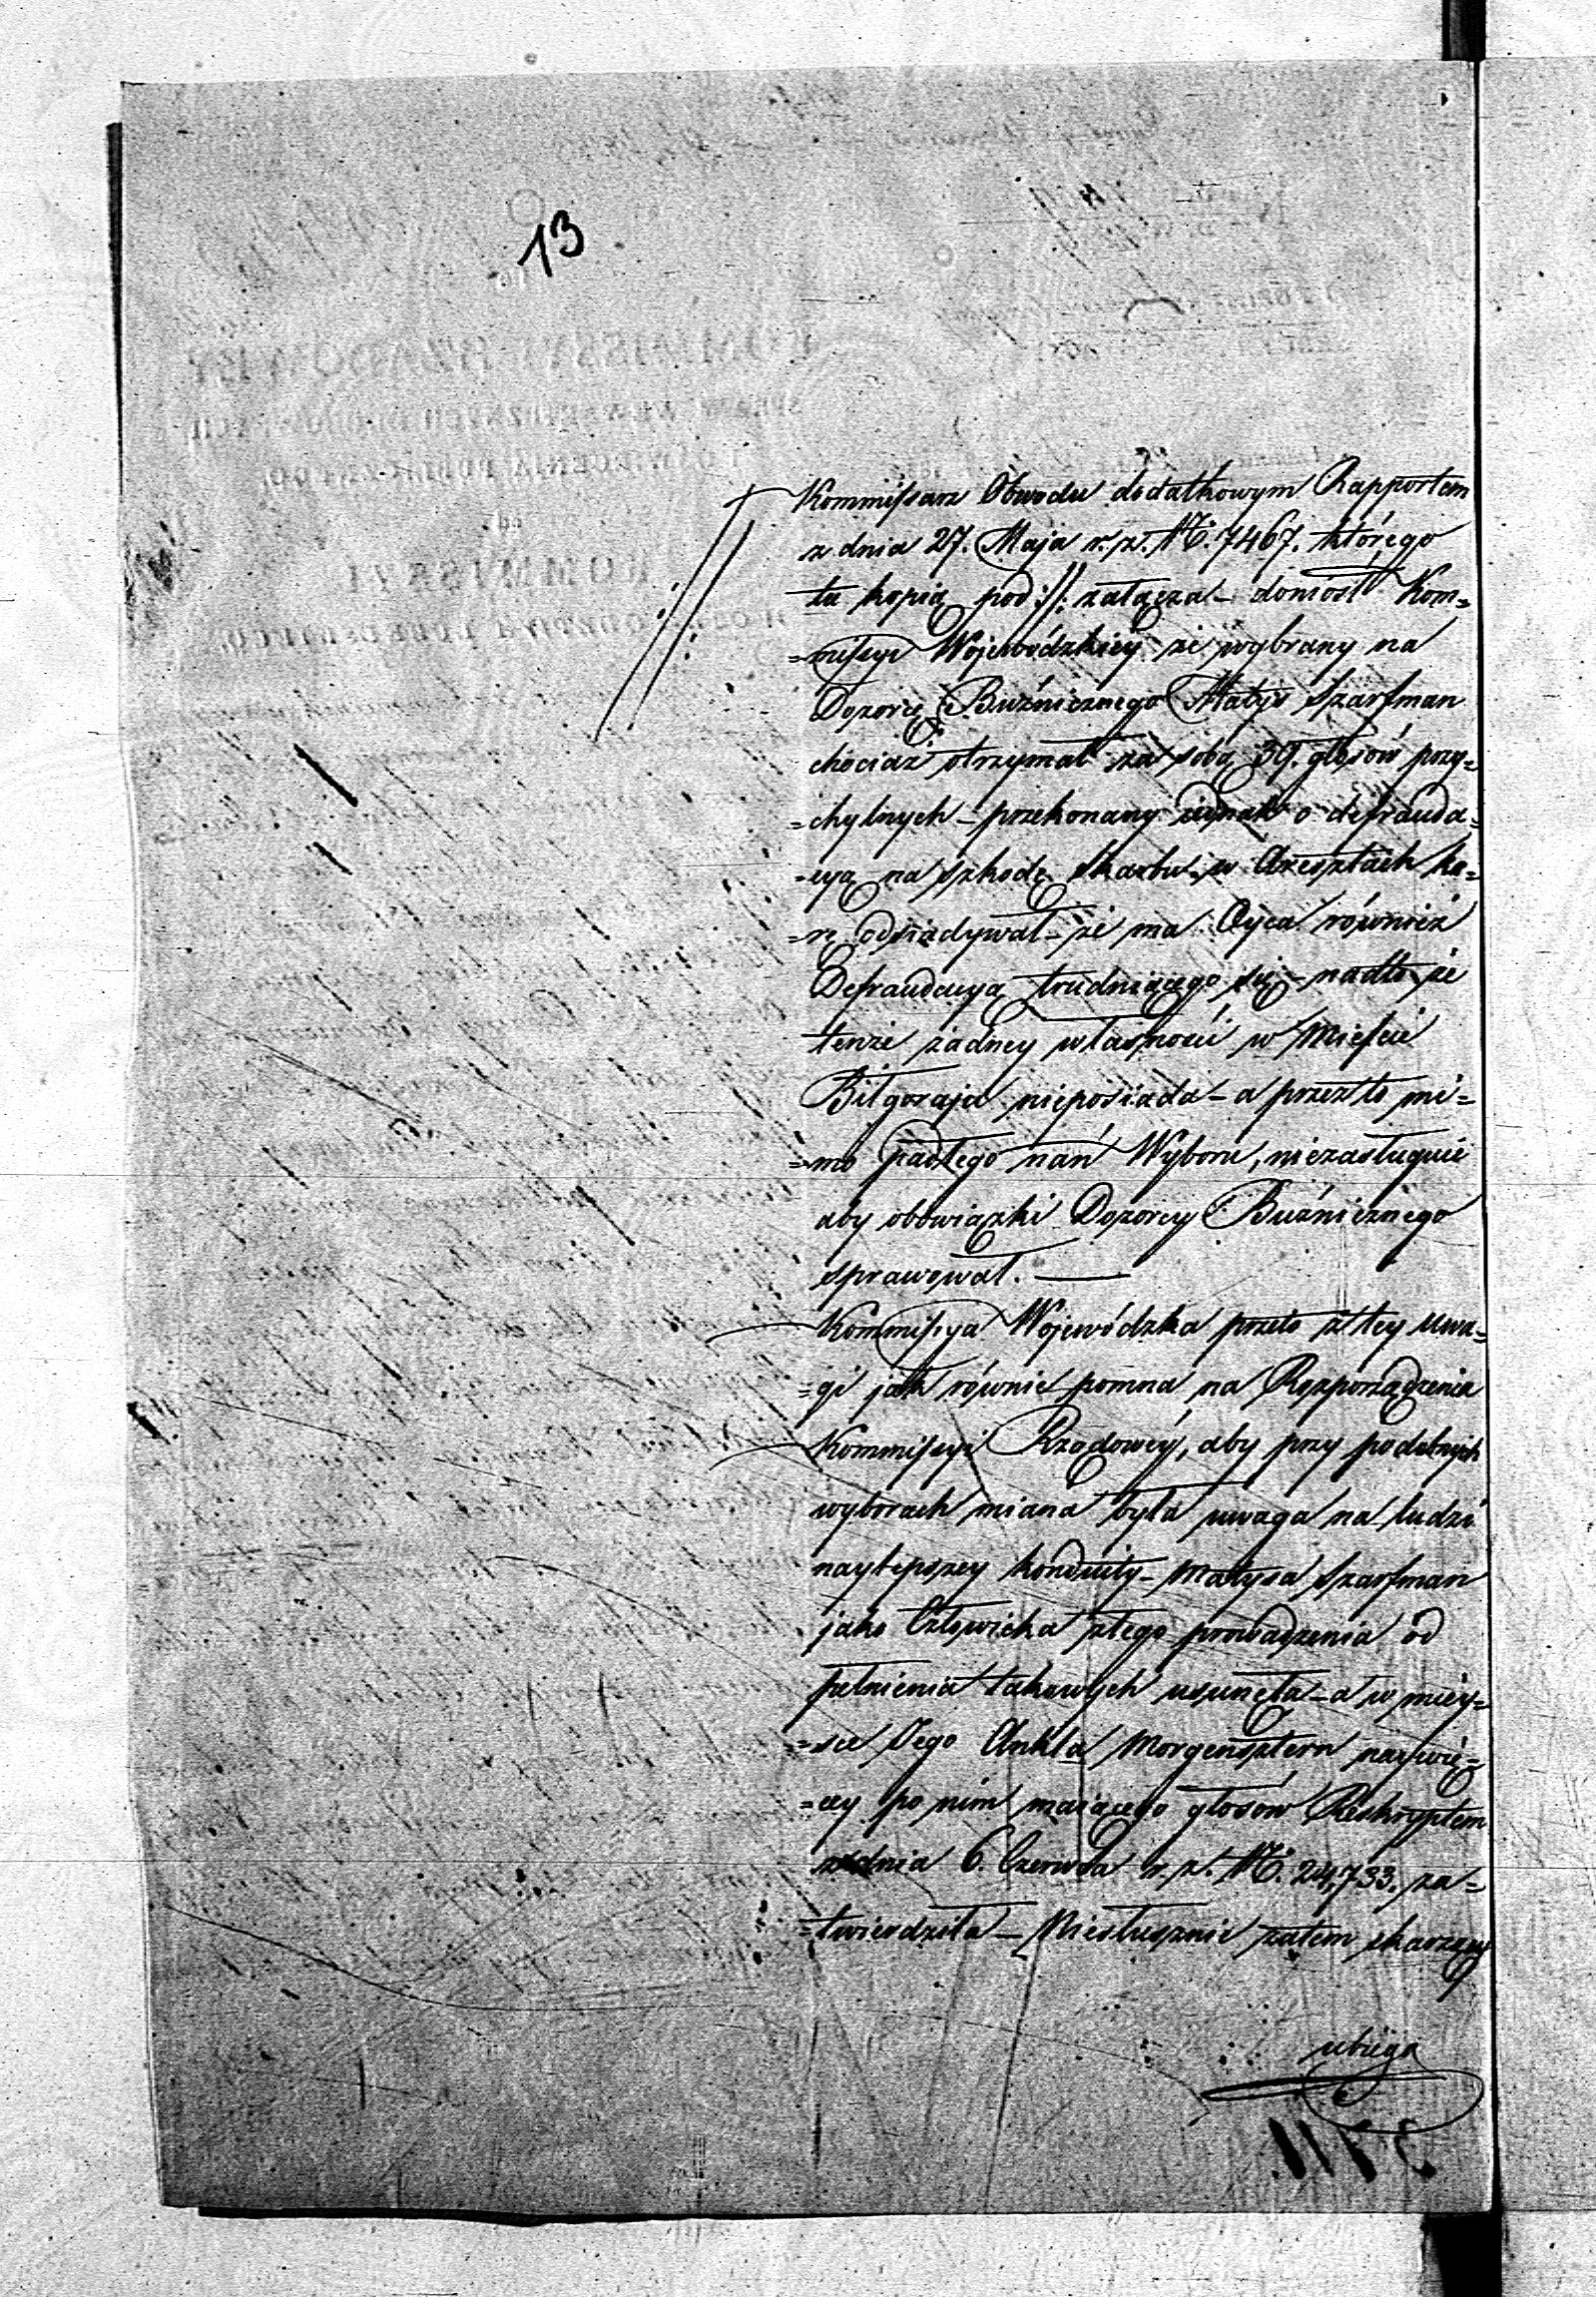 13
Kommissarz Obwodu dodatkowym Rapportem
z dnia 27. Maja r. z. N. 7467. którego
tu kopią pod ·//: załącza – doniosł Kom=
=missyi Wojewódzkiey że wybrany na
Dozorcę Buźnicznego Matys Szarfman
chociaż otrzymał za sobą 39. głosów przy=
=chylnych – przekonany iednak o defrauda=
=cyą na szkodę skarbu w Aresztach ka=
=rę odsiadywał – że ma Oyca również
Defraudacyą trudniącego się – nadto że
tenże żadney własności w Mieście
Biłgoraju nieposiada – a przez to mi=
=mo padłego nań Wyboru, niezasługuie
aby obowiązki Dozorcy Buźnicznego
sprawował. —
Kommissya Wojewódzka przeto z tey uwa=
=gi jak równie pomna na Rozporządzenia
Kommissyi Rządowey, aby przy podobnych
wyborach miana była uwaga na ludzi
naylepszey konduity – Matysa Szarfman
jako Człowieka złego prowadzenia od
pełnienia takowych usunęła – a w miey=
=sce Jego Ankla Morgensztern naywię=
=cey po nim maiącego głosów Reskryptem
z dnia 6. Czerwca r. z. N. 24,733. za=
=twierdziła – Niesłusznie zatem skarżący
ubiega
//: